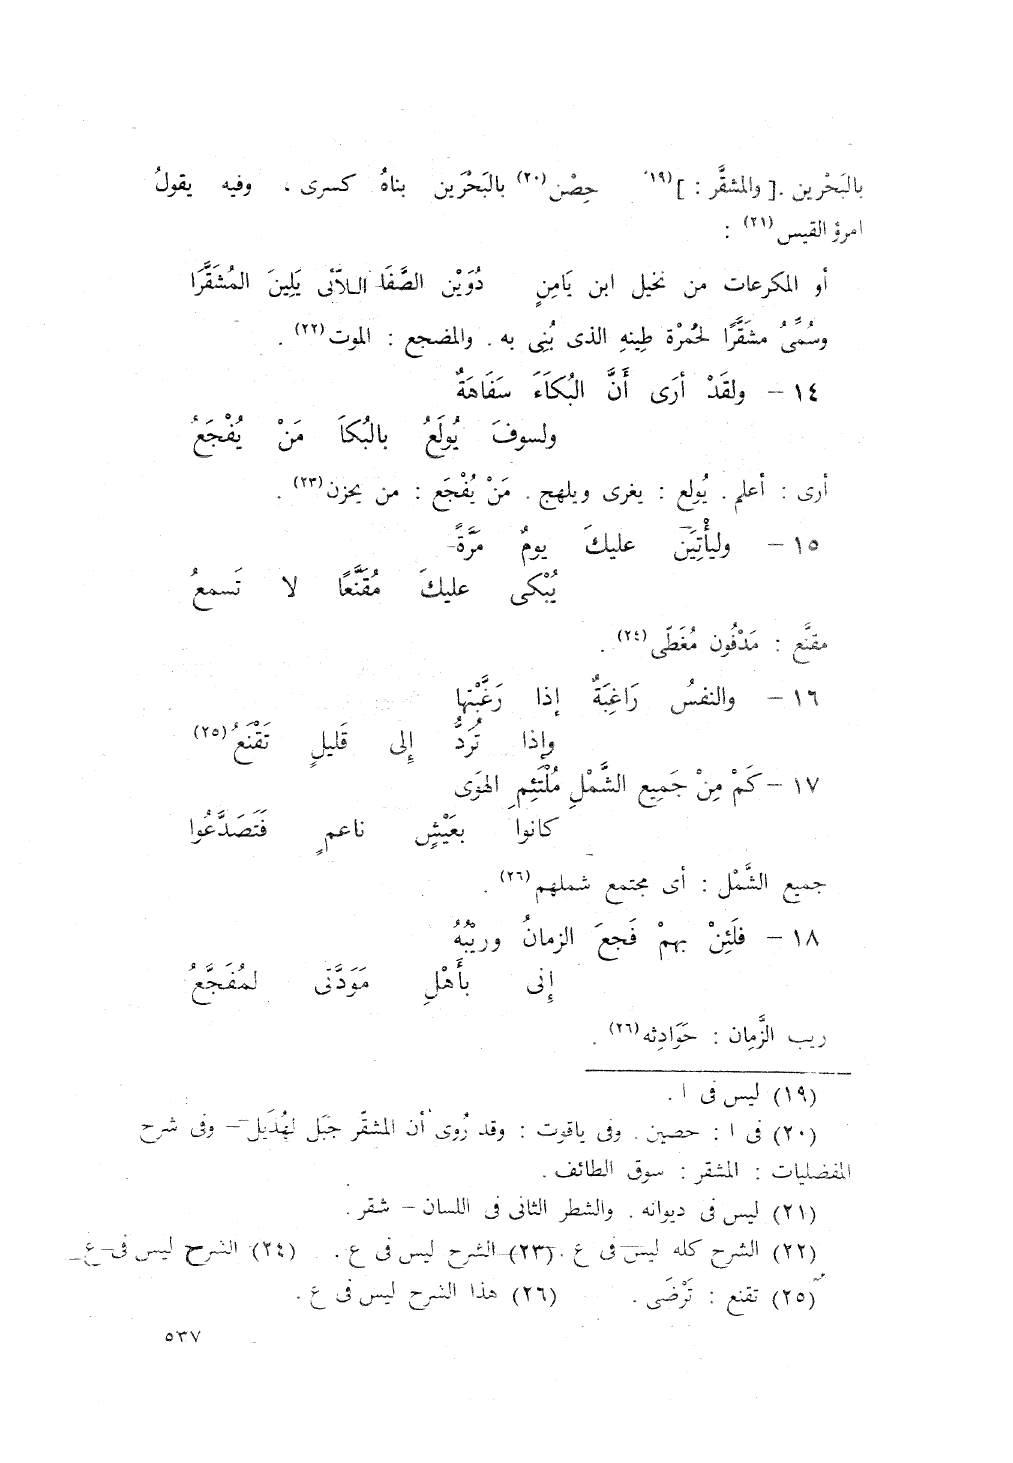 بالبَحْرين . [ والمشقَّر : ] (١٩) حِصْن (٢٠) بالبَحْرَين بناهُ كسرى ، وفيه يقولُ
امرؤ القيس (٢١) :
أو المكرعات من نخيل ابن يَامِنٍ دُوَيْن الصَّفَا اللاَّئى يَلِينَ المُشَقَّرَا
وسُمِّىَ مشَقَّرًا لحُمْرْة طِينهِ الذى بُنِى به . والمضجع : الموت (٢٢) .
١٤ – ولقَدْ أرَى أَنَّ البُكاَءَ سَفَاهَةٌ
ولسوفَ يُولَعُ بالبُكاَ مَنْ يُفْجَعُ
أرى : أعلم . يُولع : يغرى ويلهج . مَنْ يُفْجَع : من يحزن (٢٣) .
١٥ – وليأْتِيَنَّ عليكَ يومٌ مَرَّةً
يُبْكى عليكَ مُقَنَّعًا لا تَسمعُ
مقنَّع : مَدْفُون مُغَطّى (٢٤) .
١٦ – والنفسُ رَاغِبَةٌ إذا رَغَّبْتها
وإذا تُرَدُّ إلى قَليلٍ تَقْنَعُ (٢٥)
١٧ – كَمْ مِنْ جَمِيع الشَّمْلِ مُلْتَئِمِ الهَوَى
كانوا بعَيْشٍ ناعمٍ فَتَصَدَّعُوا
جميع الشَّمْل : أى مجتمع شملهم (٢٦) .
١٨ – فلَئِنْ بهمْ فَجعَ الزمانُ وريْبُهُ
إنى بأَهْلِ مَوَدَّتى لمُفَجَّعُ
ريب الزَّمِان : حَوَادِثه (٢٦) .
(١٩) ليس فى ا .
(٢٠) فى ا : حصين . وفى ياقوت : وقد رُوى أن المشقّر جَبَل لهُذَيل – وفى شرح
المفضليات : المشقر : سوق الطائف .
(٢١) ليس فى ديوانه . والشطر الثانى فى اللسان – شقر .
(٢٢) الشرح كله ليس فى ع . (٢٣) الشرح ليس فى ع . (٢٤) الشرح ليس فى ع .
(٢٥) تقنع : تَرْضَى . (٢٦) هذا الشرح ليس فى ع .
٥٣٧